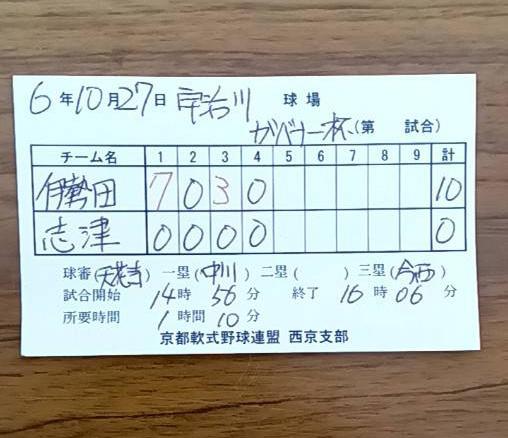 6年10月27日 宇治川 球場
ガバナー杯(第 試合)
チーム名 1 2 3 4 5 6 7 8 9 計
伊勢田 7 0 3 0 10
志津 0 0 0 0 0
球審( ) 一塁(中川) 二塁( ) 三塁(今西)
試合開始 14時56分 終了 16時06分
所要時間 1時間10分
京都軟式野球連盟 西京支部